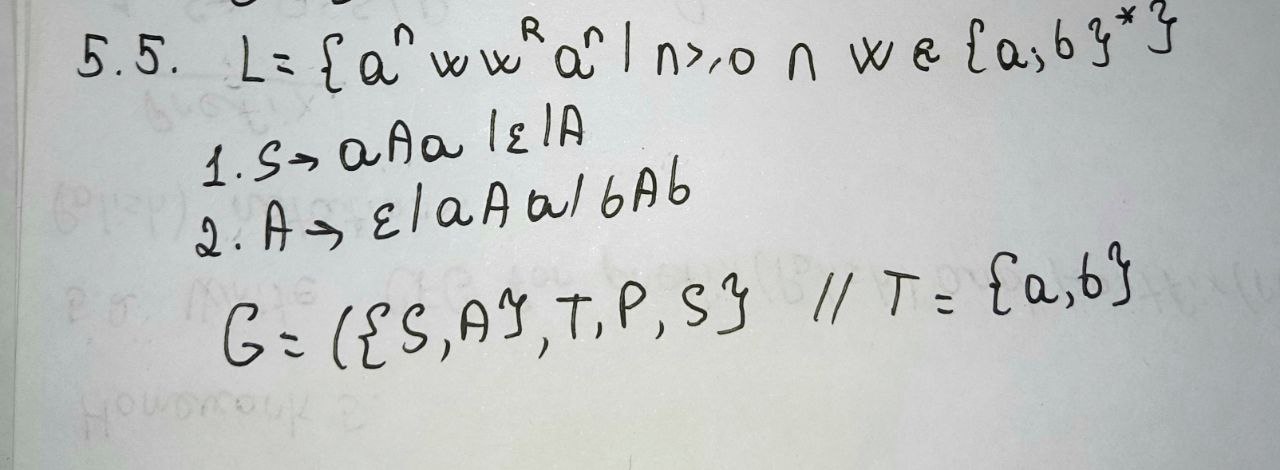 5.5. L= {aⁿ w wᴿ aⁿ | n≥0 ∩ w ∈ {a;b}*}
1. S→ aAa |ε|A
2. A→ ε|aAa|bAb
G= ({S,A}, T, P, S} // T= {a,b}